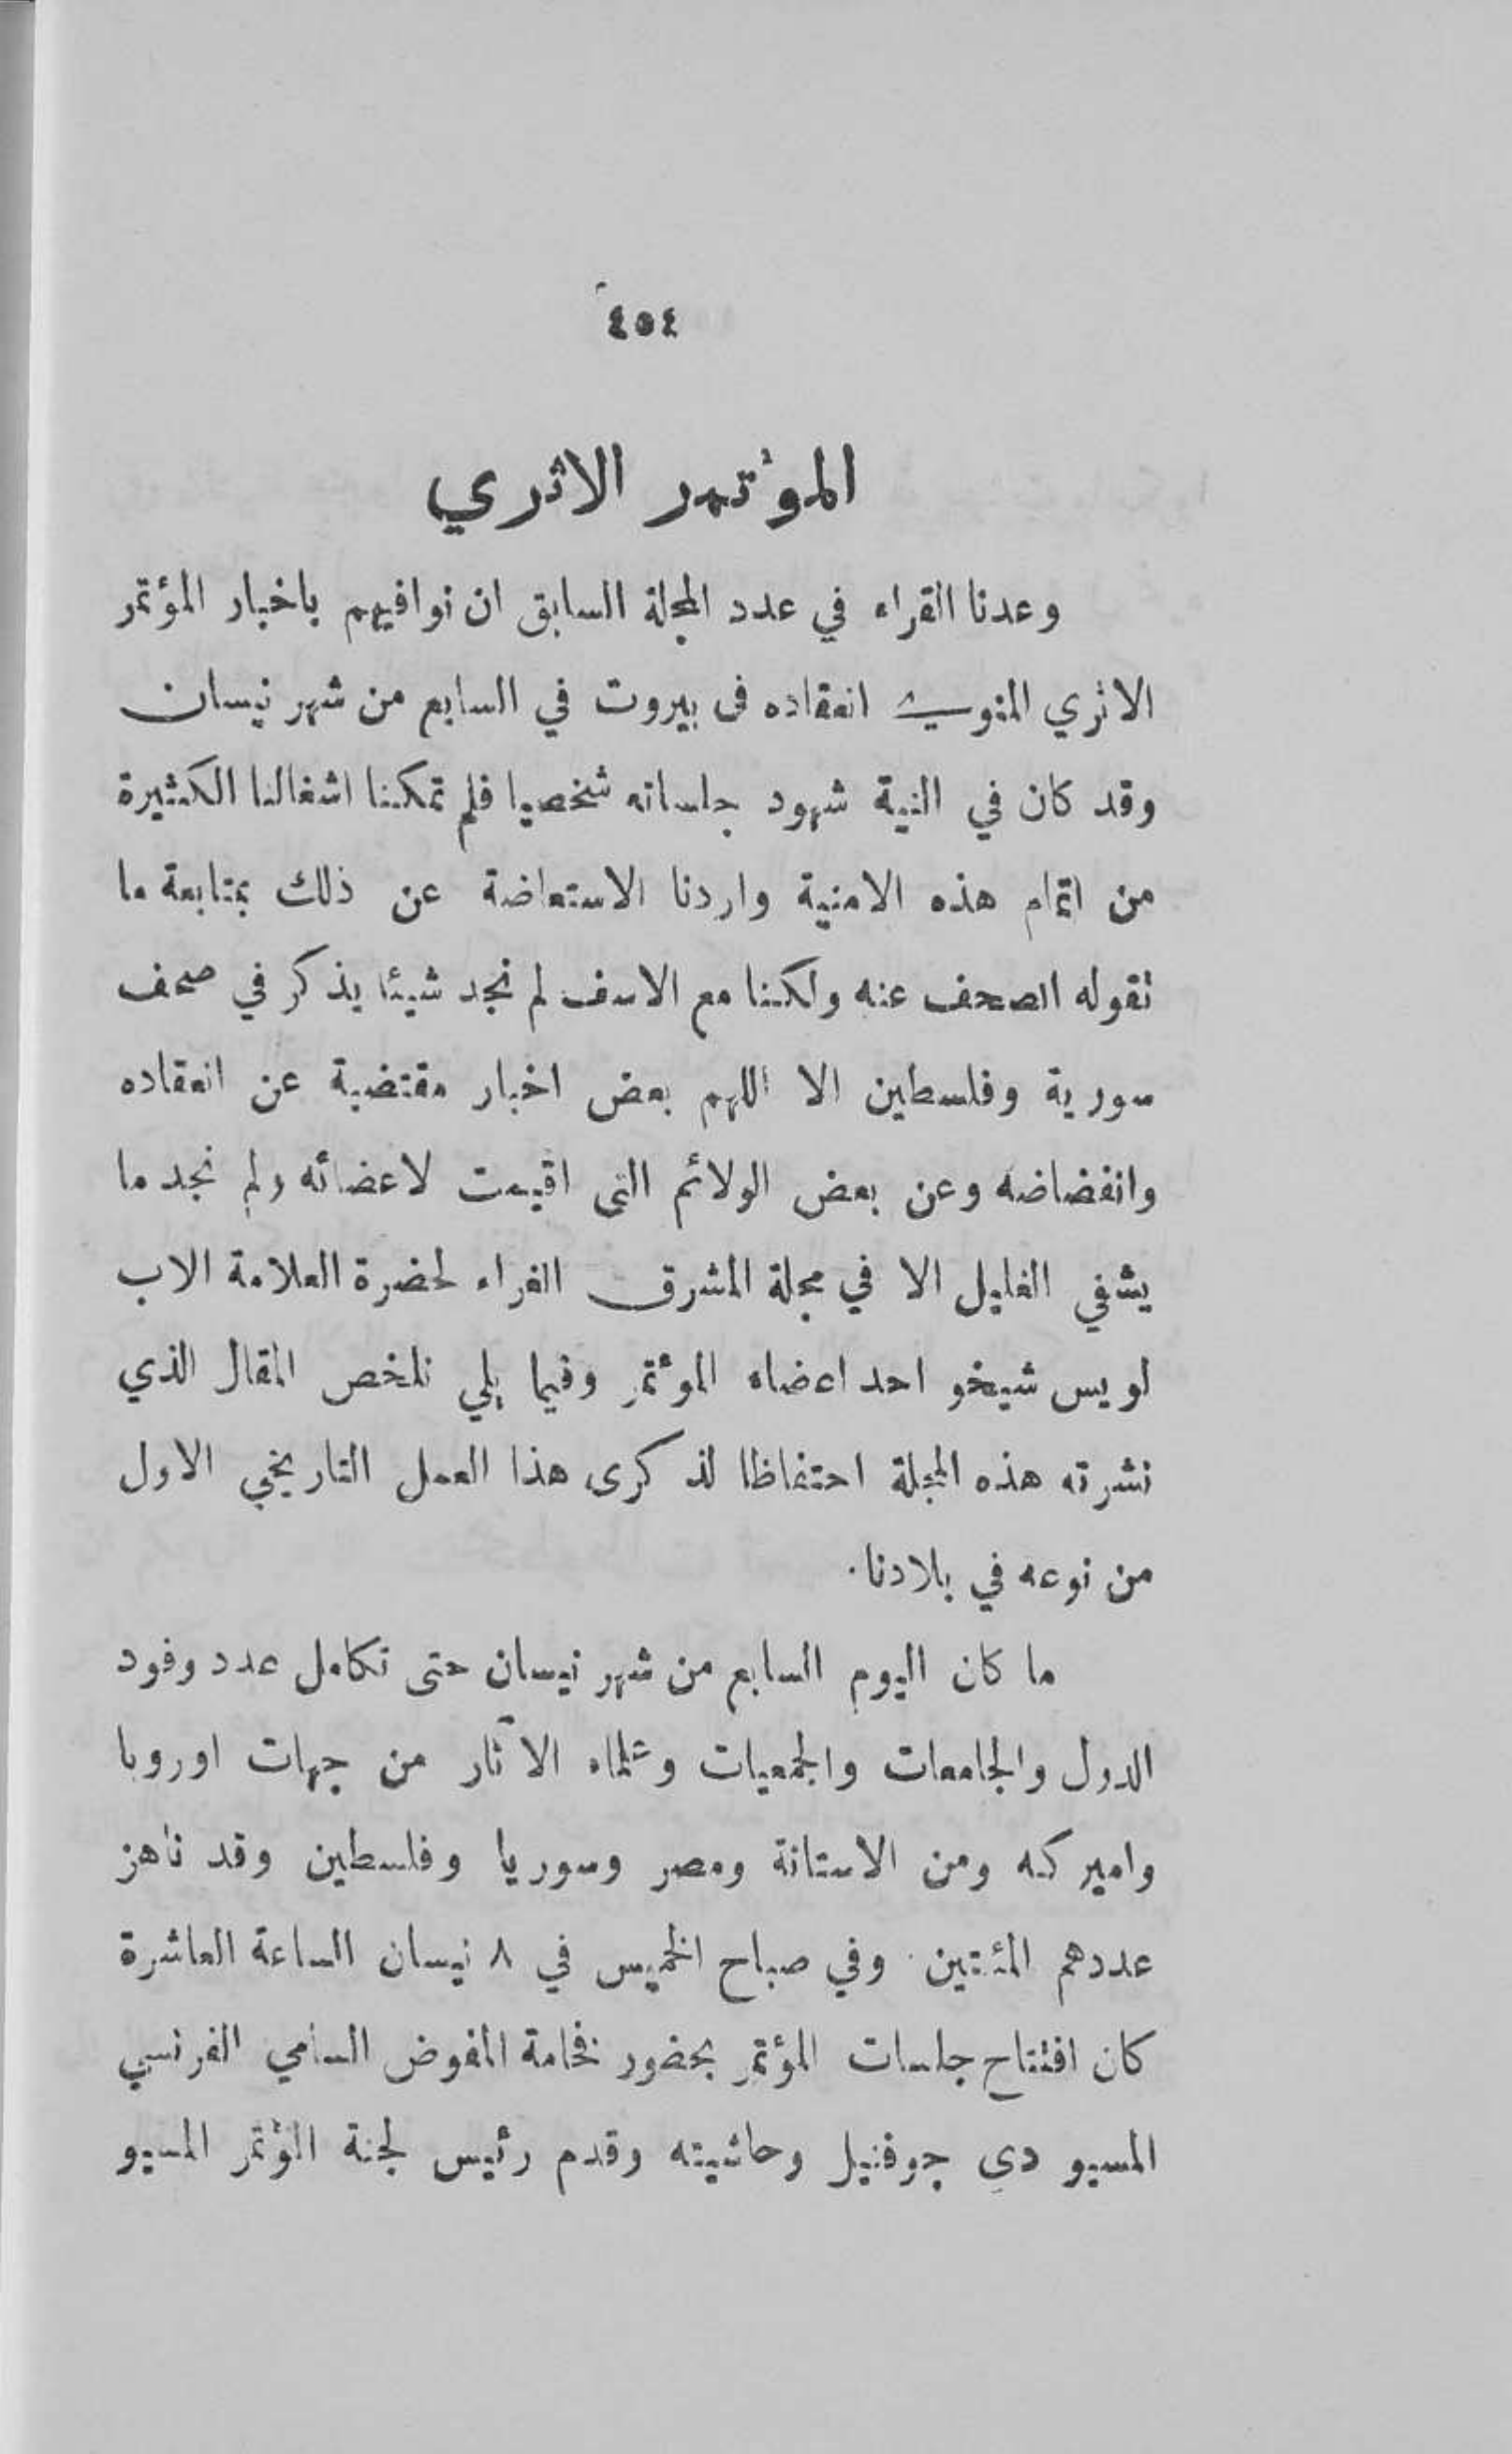 ٤٥٤
المؤتمر الاثري
وعدنا القراء في عدد المجلة السابق ان نوافيهم باخبار المؤتمر
الاثري المنوي انعقاده في بيروت في السابع من شهر نيسان
وقد كان في النية شهود جلساته شخصيا فلم تمكنا اشغالنا الكثيرة
من اتمام هذه الامنية واردنا الاستعاضة عن ذلك بمتابعة ما
تقوله الصحف عنه ولكننا مع الاسف لم نجد شيئا يذكر في صحف
سورية وفلسطين الا اللهم بعض اخبار مقتضبة عن انعقاده
وانفضاضه وعن بعض الولائم التى اقيمت لاعضائه ولم نجد ما
يشفي الغليل الا في مجلة المشرق الغراء لحضرة العلامة الاب
لويس شيخو احد اعضاء المؤتمر وفيما يلي نلخص المقال الذي
نشرته هذه المجلة احتفاظا لذكرى هذا العمل التاريخي الاول
من نوعه في بلادنا.
ما كان اليوم السابع من شهر نيسان حتى تكامل عدد وفود
الدول والجامعات والجمعيات وعلماء الآثار من جهات اوروبا
واميركه ومن الاستانة ومصر وسوريا وفلسطين وقد ناهز
عددهم المئتين. وفي صباح الخميس في ٨ نيسان الساعة العاشرة
كان افتتاح جلسات المؤتمر بحضور فخامة المفوض السامي الفرنسي
المسيو دي جوفنيل وحاشيته وقدم رئيس لجنة المؤتمر المسيو